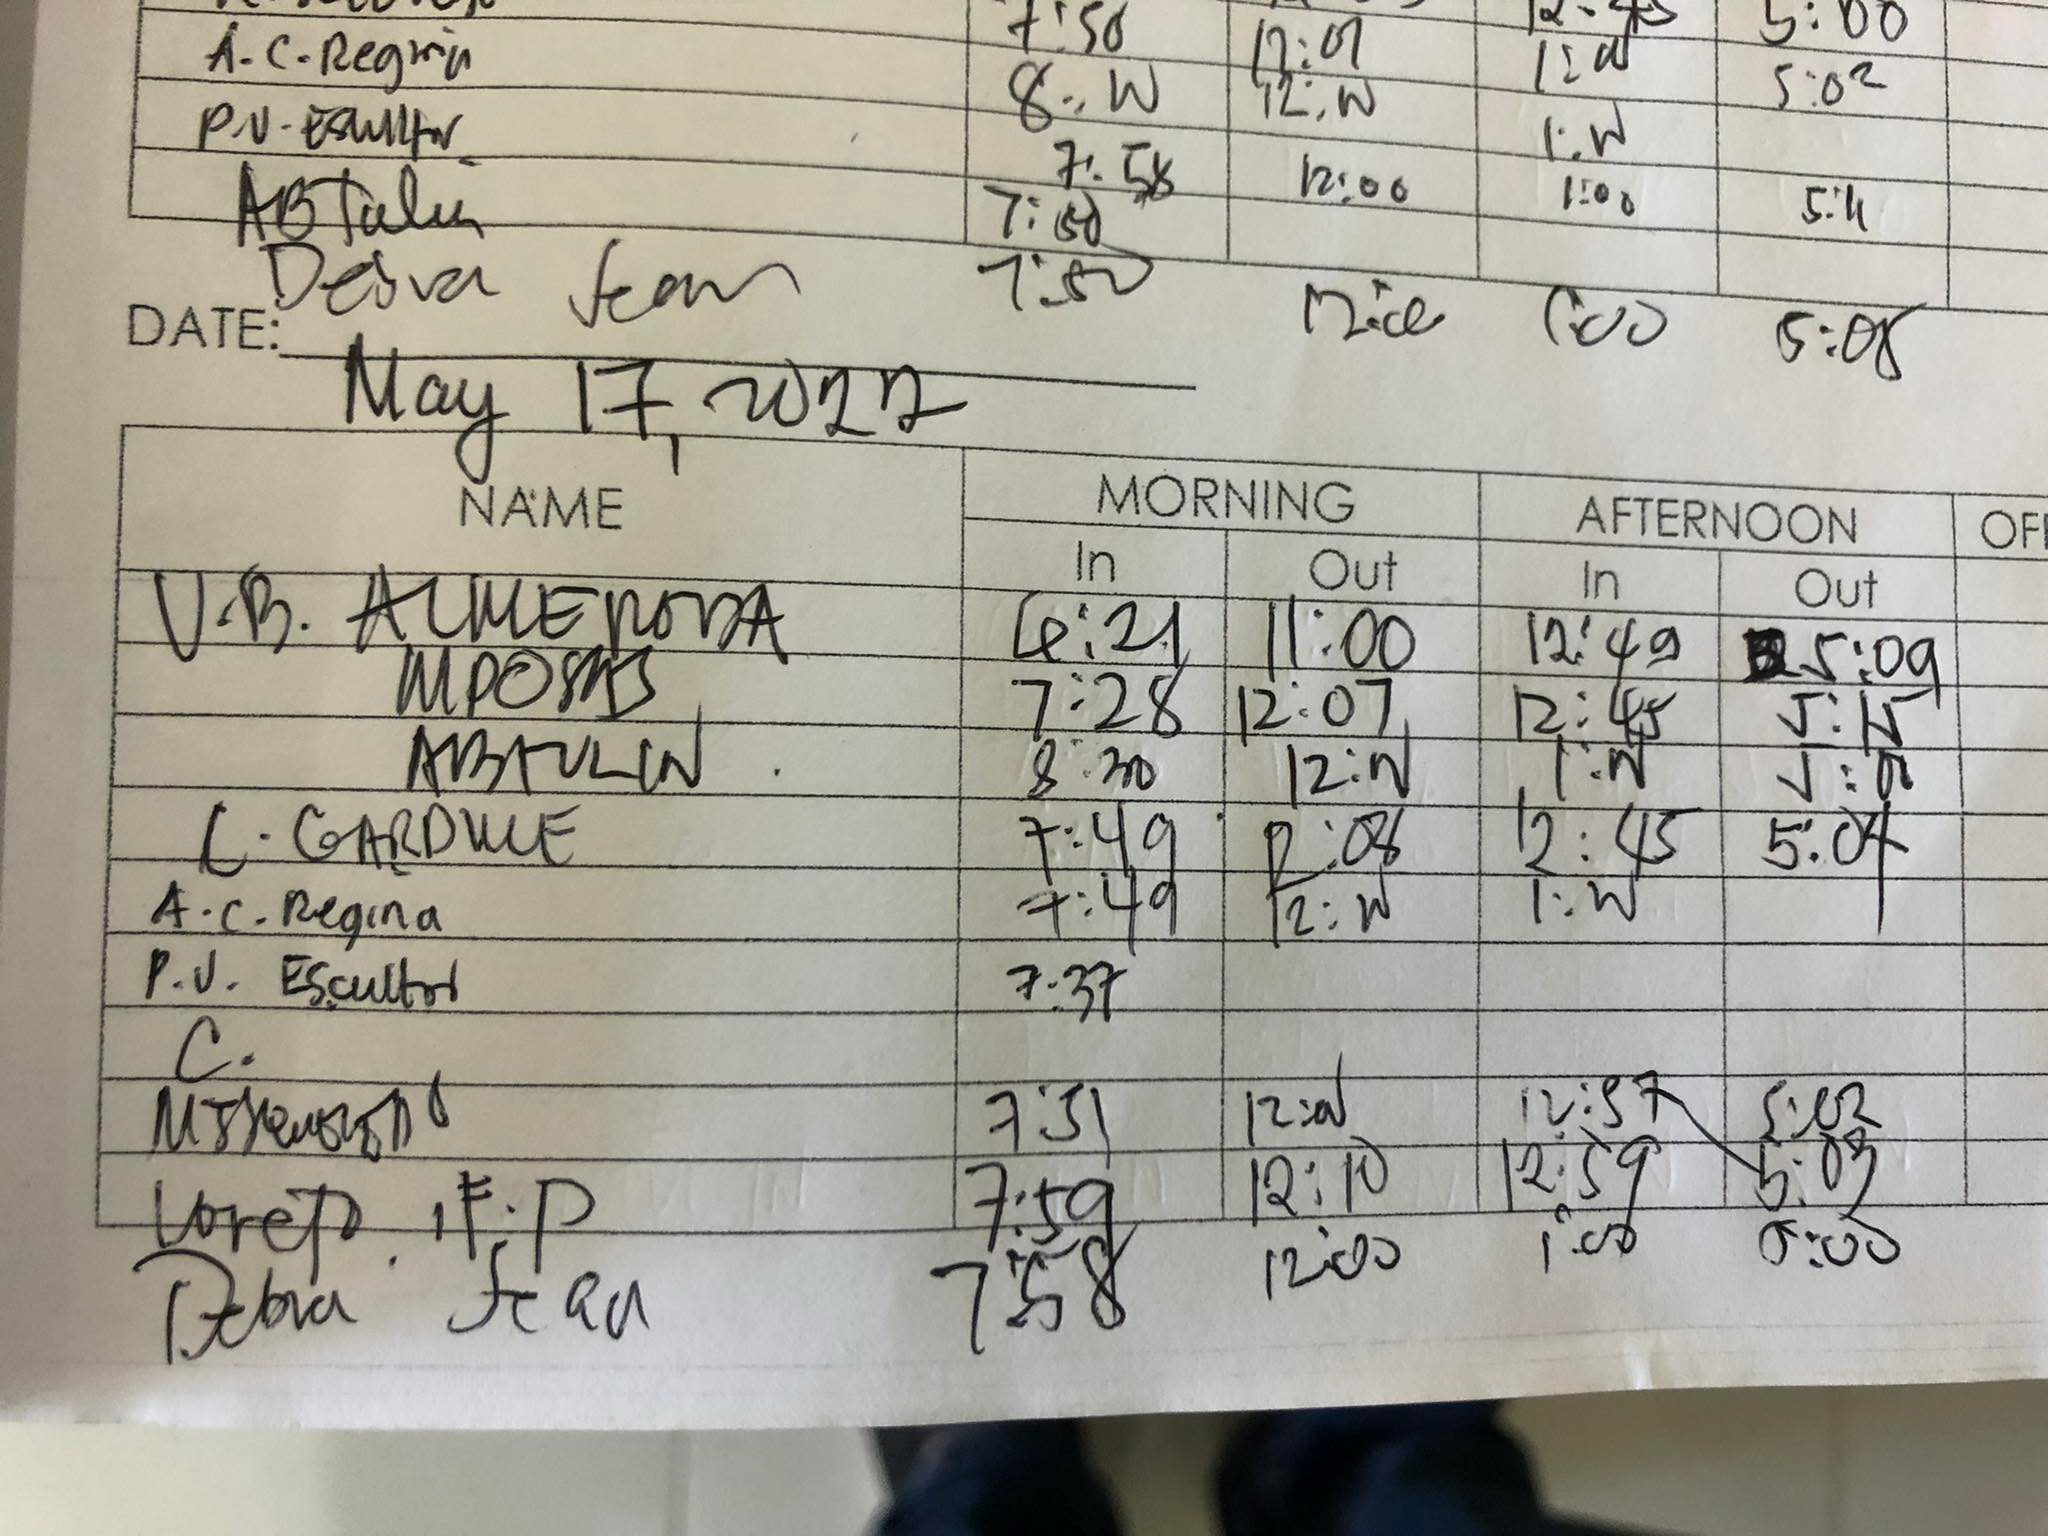 7:50 12:45 5:00
A.C. Regina 8:00 12:07 1:00 5:02
P.V. Escultor 12:00 1:00
7:58 12:00 1:00 5:11
7:50
Debra Jean 7:50 12:00 1:00 5:08
DATE:
May 17, 2022
NAME MORNING AFTERNOON
In Out In Out
V.B. ALMERODA 6:21 11:00 12:49 5:09
7:28 12:07 12:45 5:15
ABTULIN 8:30 12:00 1:00
C. GARDUCE 7:49 12:08 12:45 5:04
A.C. Regina 7:49 12:00 1:00
P.V. Escultor 7:37
C.
7:51 12:00 12:57 5:02
Loreto, F.P 7:59 12:10 12:59 5:03
Debra Jean 7:58 12:00 1:00 5:00